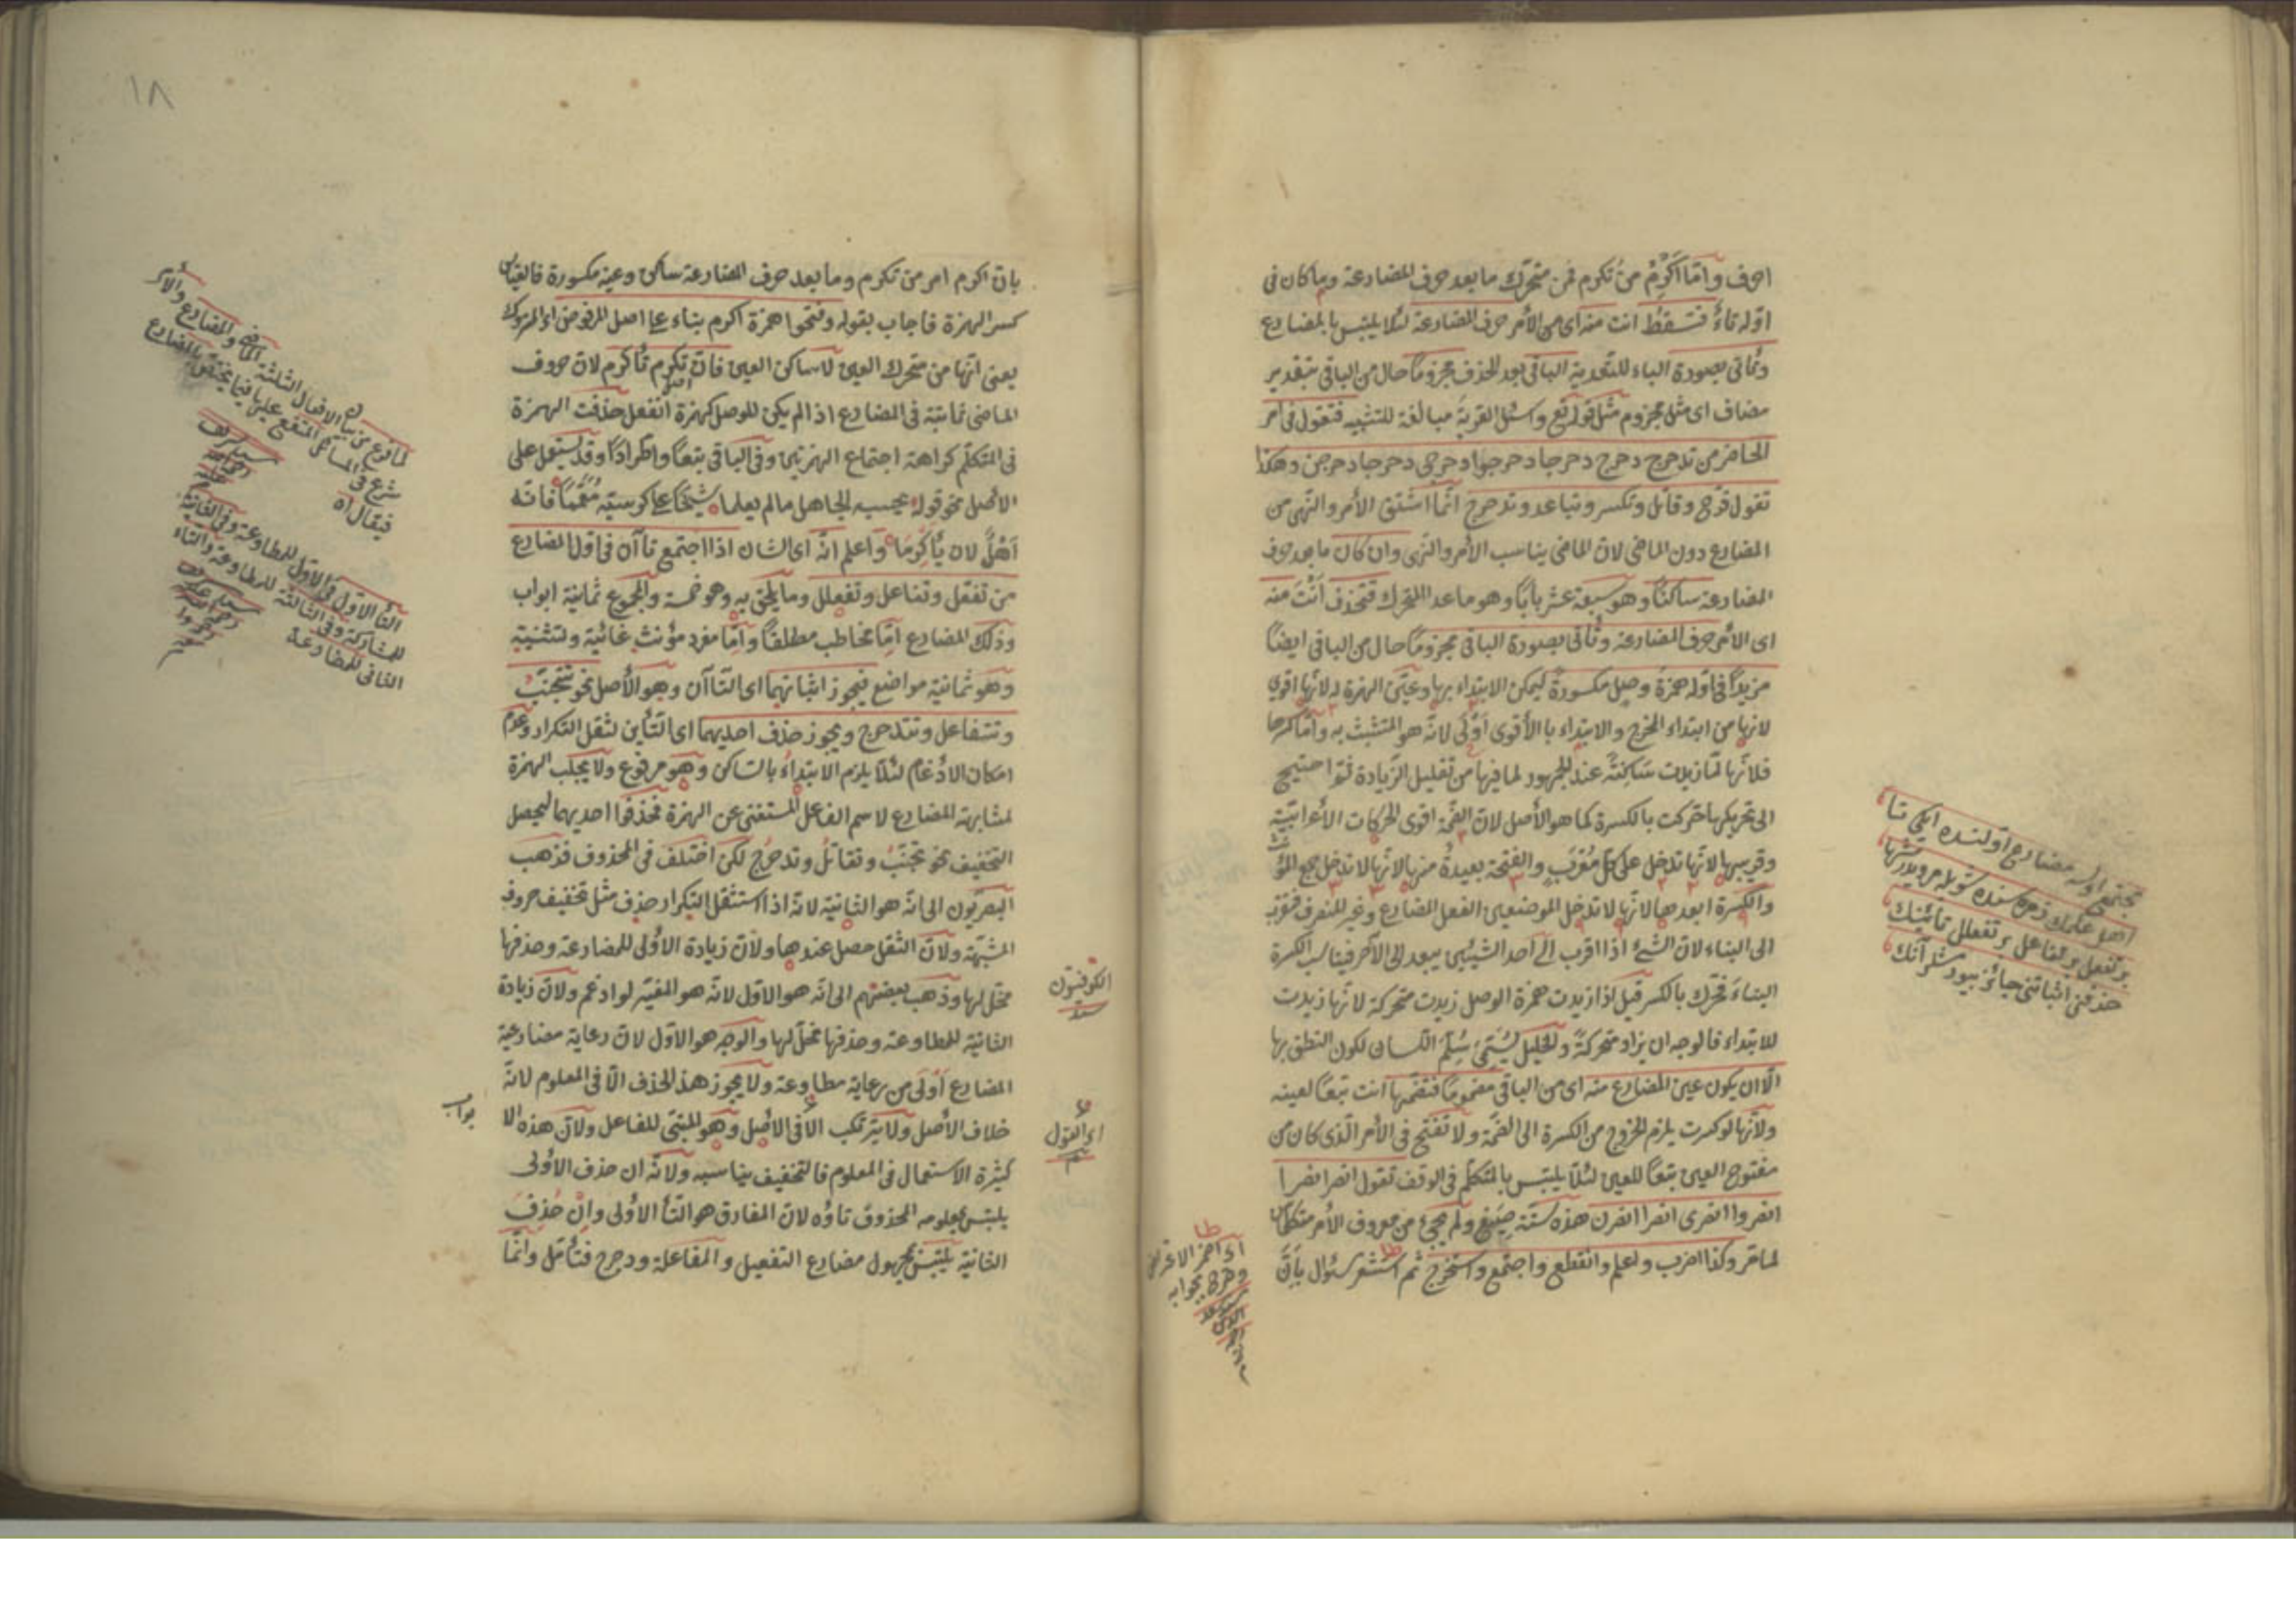 احرف وامّا اَكْرِمْ من تُكرم فمن متحرّك ما بعد حرف المضارعة وما كان فى
اوّله تاءٌ فتسقطُ انت منه اى من الأمر حرف المضارعة لئلا يلتبس بالمضارع
وتأتى بصورة الباء للتعدية الباقى بعد الحذف مجزومًا حال من الباقى بتقدير
مضاف اى مثل مجزوم مثل قوله تع واسئل القرية مبالغة للتشبيه فتقول فى امر
الحاضر من تدحرج دحرج دحرجا دحرجوا دحرجى دحرجا دحرجن وهكذا
تقول فرّح وقاتل وتكسر وتباعد وتدحرج انّما اشتق الأمر والنّهى من
المضارع دون الماضى لان الماضى يناسب الأمر والنهى وان كان ما بعد حرف
المضارعة ساكنًا وهو سبعة عشر بابًا وهو ما عدا المتحرك فتحذف اَنْتَ منه
اى الأمر حرف المضارعة وتأتى بصورة الباقى مجزومًا حال من الباقى ايضًا
مزيدًا فى اوّله همزةُ وصل مكسورةً ليمكن الابتداء بها وعيّن الهمزة له لانّها اقوى
لانها من ابتداء المخرج والابتداء بالأقوى اَوْلى لانّه هو المتشبث به وامّا كسرها
فلانّها لمّا زيدت سَاكِنَةً عند الجمهور لما فيها من تقليل الزّيادة ثمّ احتيج
الى تحريكها حرّكت بالكسرة كما هو الأصل لان الضمّة اقوى الحركات الأعرابيّة
وقريبها لانّها تدخل على كلّ مُعْرَبٍ والفتحة بعيدةٌ منها لانّها لا تدخل جمع المؤنث
والكسرة ابعدها لانّها لا تدخل الموضعين الفعل المضارع وغير المنصرف فتقرّب
الى البناء لان الشئ اذا اقرب الى احد الشيئين يبعد الى الآخر فيناسب الكسرة
البناءَ فحرّك بالكسر قيل اذا زيدت همزة الوصل زيدت متحركة لانّها زيدت
للابتداء فالوجه ان يزاد متحركةً والخليل يُسَمّى سُلّمَ اللسان لكون النطق بها
الّا ان يكون عين المضارع منه اى من الباقى مضمومًا فتضمّها انت تبعًا لعينه
ولانّها لو كسرت يلزم الخروج من الكسرة الى الضمّة ولا تفتح فى الأمر الّذى كان من
مفتوح العين تبعًا للعين لئلّا يلتبس بالمتكلّم فى الوقف تقول انصر انصرا
انصروا انصرى انصرا انصرن هذه ستّة صِيَغ ولم يجئ من معروف الأمر متكلّمًا
لما مرّ وكذا اضرب واعلم وانقطع واجتمع واستخرج ثم استشعر سئوال بانّ
تجتمع اولسه مضارع اوّلنده ايكى تا
برتفعل برتفاعل برتفعلل تائينك
حذفنى اثباتنى جائز بيور
وخرج بجوابه
بانّ اكرم امر من تكرم وما بعد حرف المضارعة ساكن وعينه مكسورة فالقياس
كسر الهمزة فاجاب بقوله وفتحوا همزة اكرم بناء على اصل المرفوض اى المتروك
يعنى انّها من متحرك العين لا ساكن العين فانّ تكرم تُأكرم لان حروف
الماضى ثابتة فى المضارع اذا لم يكن للوصل كهمزة انفعل حذفت الهمزة
فى المتكلّم كراهة اجتماع الهمزتين وفى الباقى تبعًا واطّرادًا وقد يستعمل على
الأصل نحو قوله يحسبه الجاهل ما لم يعلما شيخًا على كرسيّه مُعَمَّمًا فانّه
اَهْلٌ لان يُأَكْرَمَا واعلم انّه اى الشان اذا اجتمع تاآن فى اوّل المضارع
من تفعّل وتفاعل وتفعلل وما يلحق به وهو خمسة والمجموع ثمانية ابواب
وذلك المضارع امّا مخاطب مطلقًا وامّا مفرد مؤنث غائبة ولتثنيته
وهو ثمانية مواضع فيجوز اثباتهما اى التاآن وهو الأصل نحو تتجنّب
وتتفاعل وتتدحرج ويجوز حذف احديهما اى التّأين لثقل التكرار وعدم
امكان الادّغام لئلّا يلزم الابتداء بالساكن وهو مرفوع ولا يجلب الهمزة
لمشابهة المضارع لاسم الفاعل المستغنى عن الهمزة فحذفوا احديهما ليحصل
التخفيف نحو تجنّبُ وتقاتلُ وتدحرجُ لكن اختلف فى المحذوف فذهب
البصريّون الى انّه هو الثانية لانّه اذا استثقل التكرار حذف مثل تخفيف حروف
المشبّهة ولان الثقل حصل عندها ولانّ زيادة الأولى للمضارعة وحذفها
مخلّ لها وذهب بعضهم الى انّه هو الاوّل لانّه هو المغيّر لو ادغم ولانّ زيادة
الثانية للمطاوعة وحذفها مخلّ لها والوجه هو الاوّل لان رعاية مضارعية
المضارع اَولى من رعاية مطاوعة ولا يجوز هذا الحذف الّا فى المعلوم لانّه
خلاف الأصل ولا يرتكب الّا فى الأصل وهو المبنى للفاعل ولانّ هذه الا
كثيرة الاستعمال فى المعلوم فالتخفيف يناسبه ولانّه ان حذف الأولى
يلتبس بمعلومه المحذوف تاؤه لان الفارق هو التّاء الأولى وانْ حُذِفَ
الثانية يلتبس بمجهول مضارع التفعيل والمفاعلة ودحرج فتأمّل وانّما
الكوفيّون
بواب
لما فرغ من بيان الافعال الثلثة الماضى والمضارع والأمر
شرع فى المسائل المتفرع عليها فيما يختصّ بالمضارع
فقال اه
التاء الأوّل فى الأوّل للمطاوعة وفى الثانية
للمشاركة وفى الثالثة للمطاوعة والتاء
الثانى للمضارعة
١٨